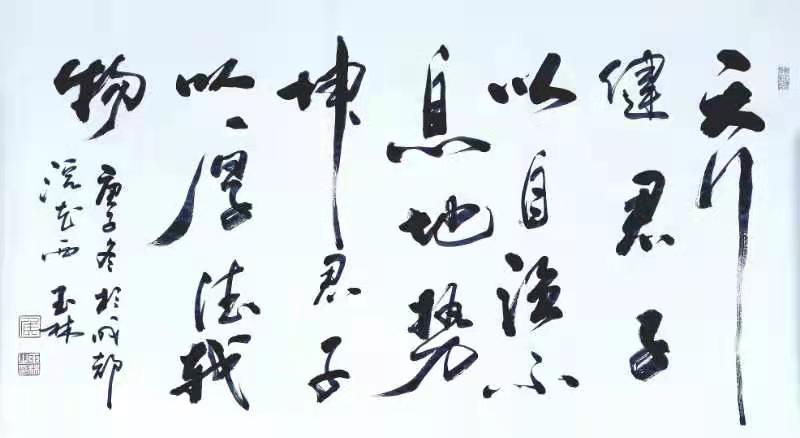 天行
健君子
以自强不
息地势
坤君子
以厚德载
物
庚子冬于成都
浣花西玉林